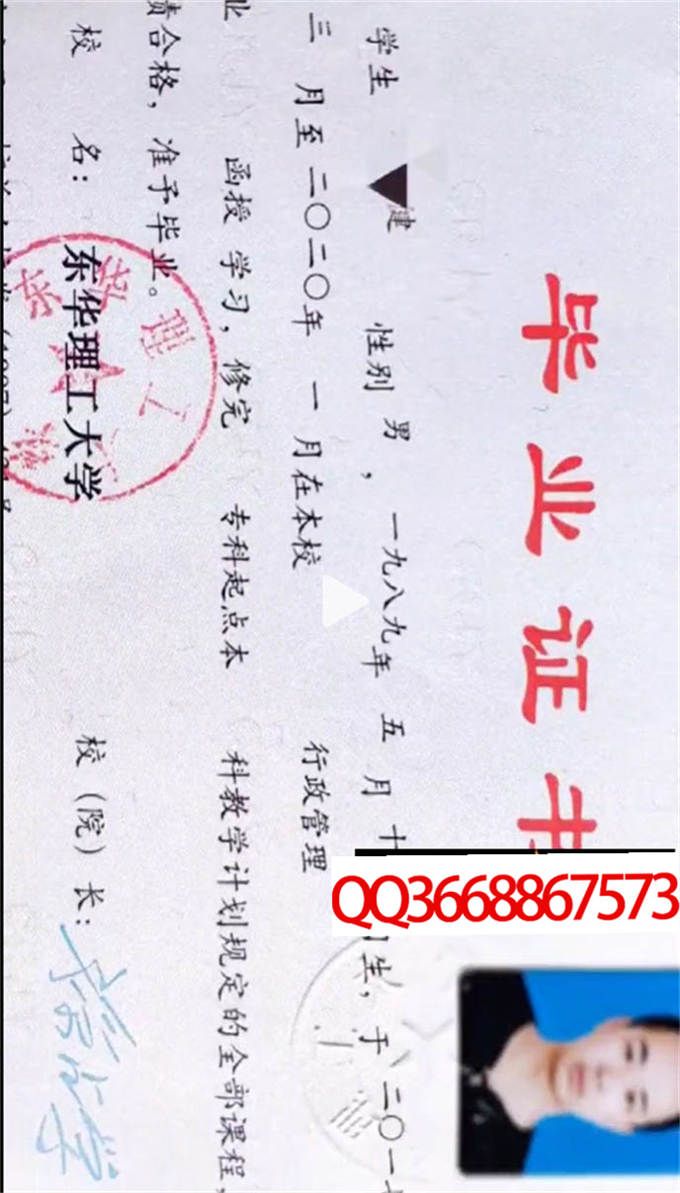 毕业证书
学生 健 性别 男，一九八九年 五 月 十 生，于 二〇一七
三 月至 二〇二〇年 一 月在本校 行政管理
业 函授 学习，修完 专科起点本 科教学计划规定的全部课程，
绩合格，准予毕业。
校 名：东华理工大学 校（院）长：
QQ3668867573